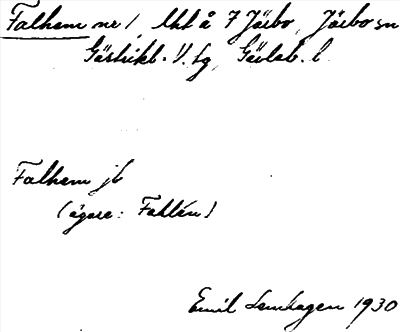 Falhem nr 1, lht å 7 Järbo, Järbo sn
Gästrikl. V. tg, Gävleb. l.
Falhem jb
(ägare: Fahlén)
Emil Lenhagen 1930